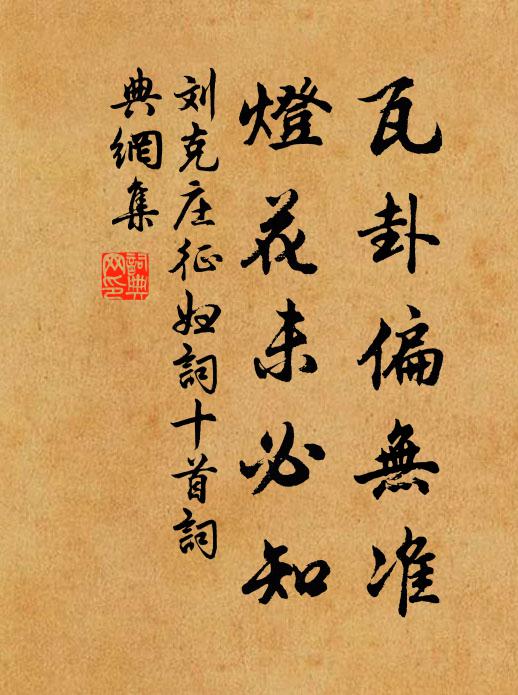 瓦卦偏無准
燈花未必知
刘克庄征妇詞十首詞
典網集
詞典網印